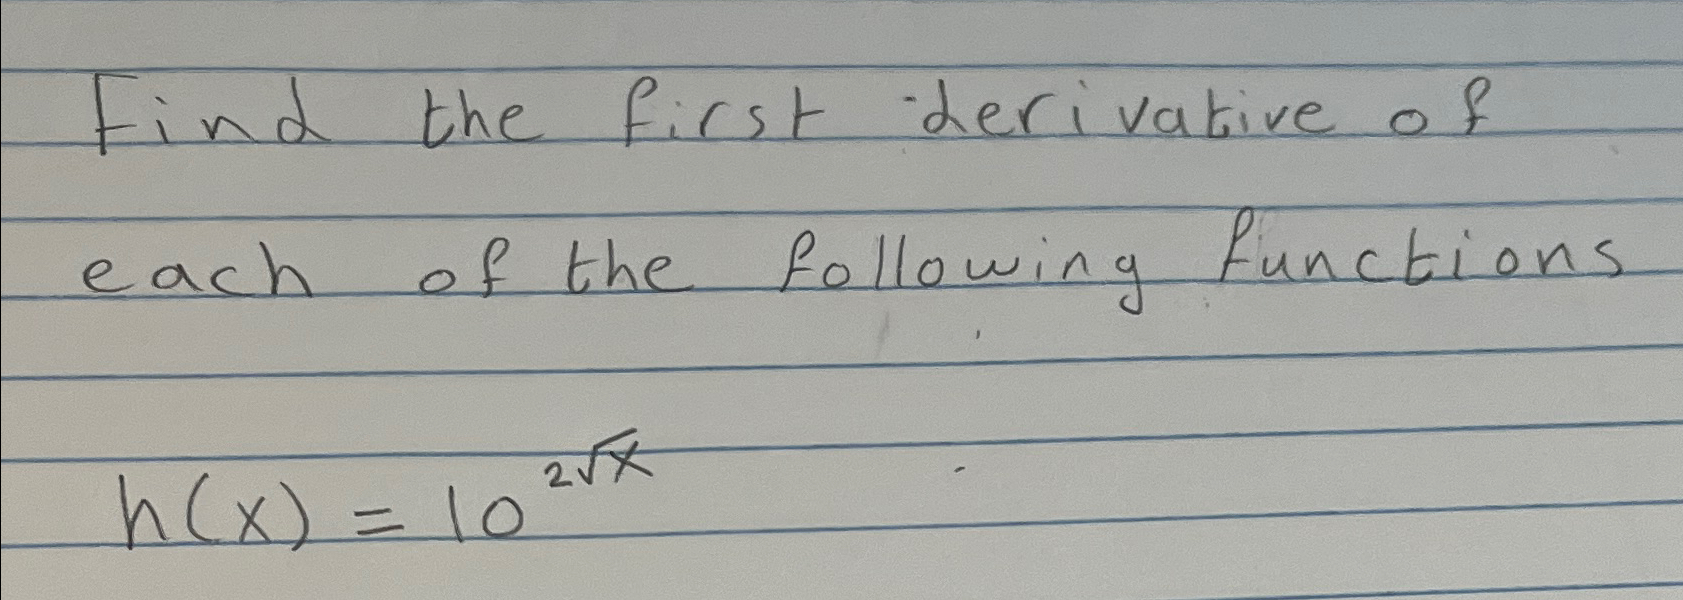 Find the first derivative of
each of the following functions
h(x) = 10^{2√x}